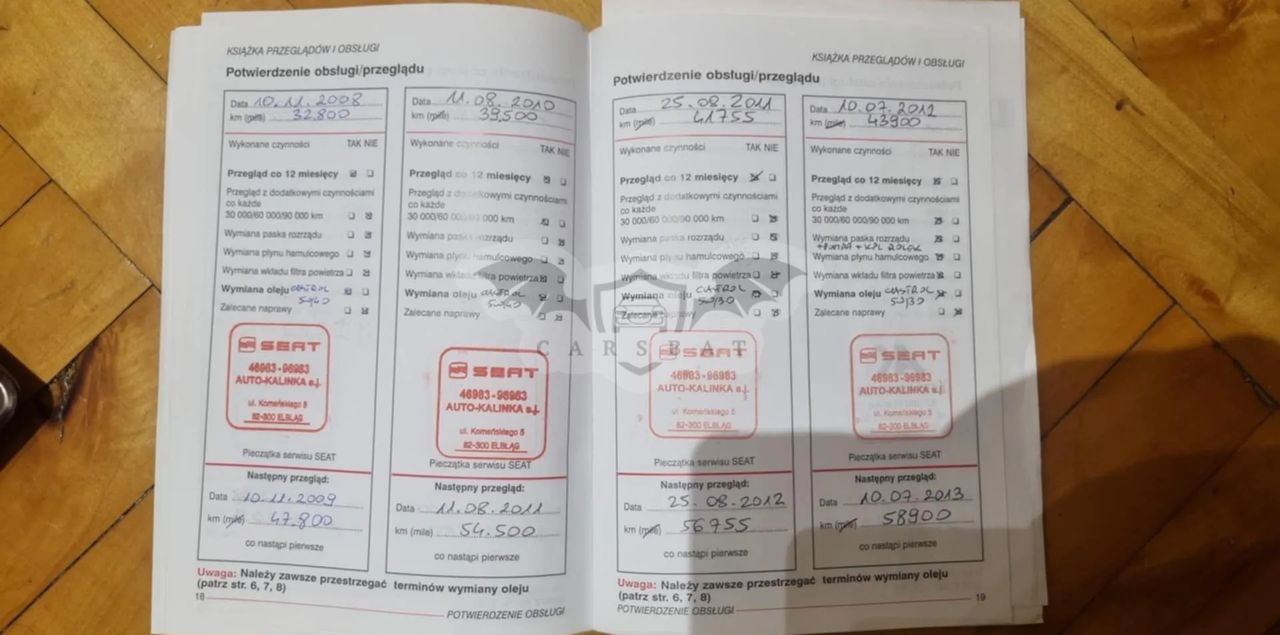 KSIĄŻKA PRZEGLĄDÓW I OBSŁUGI
Potwierdzenie obsługi/przeglądu
Data 10.11.2008
km (mile) 32.800
Wykonane czynności TAK NIE
Przegląd co 12 miesięcy
Przegląd z dodatkowymi czynnościami
co każde
30 000/60 000/90 000 km
Wymiana paska rozrządu
Wymiana płynu hamulcowego
Wymiana wkładu filtra powietrza
Wymiana oleju CASTROL
5W40
Zalecane naprawy
SEAT
46983-96983
AUTO-KALINKA s.j.
ul. Komeńskiego 5
82-300 ELBLĄG
Pieczątka serwisu SEAT
Następny przegląd:
Data 10.11.2009
km (mile) 47.800
co nastąpi pierwsze
Data 11.08.2010
km (mile) 39.500
Wykonane czynności
TAK NIE
Przegląd co 12 miesięcy
Przegląd z dodatkowymi czynnościami
co każde
30 000/60 000/90 000 km
Wymiana paska rozrządu
Wymiana płynu hamulcowego
Wymiana wkładu filtra powietrza
Wymiana oleju CASTROL
5W40
Zalecane naprawy
SEAT
46983-96983
AUTO-KALINKA s.j.
ul. Komeńskiego 5
82-300 ELBLĄG
Pieczątka serwisu SEAT
Następny przegląd:
Data 11.08.2011
km (mile) 54.500
co nastąpi pierwsze
Uwaga: Należy zawsze przestrzegać terminów wymiany oleju
(patrz str. 6, 7, 8)
18
POTWIERDZENIE OBSŁUGI
KSIĄŻKA PRZEGLĄDÓW I OBSŁUGI
Potwierdzenie obsługi/przeglądu
Data 25.08.2011
km (mile) 41755
Wykonane czynności TAK NIE
Przegląd co 12 miesięcy
Przegląd z dodatkowymi czynnościami
co każde
30 000/60 000/90 000 km
Wymiana paska rozrządu
Wymiana płynu hamulcowego
Wymiana wkładu filtra powietrza
Wymiana oleju CASTROL
5W30
Zalecane naprawy
SEAT
46983-96983
AUTO-KALINKA s.j.
ul. Komeńskiego 5
82-300 ELBLĄG
Pieczątka serwisu SEAT
Następny przegląd:
Data 25.08.2012
km (mile) 56755
co nastąpi pierwsze
Data 10.07.2012
km (mile) 43900
Wykonane czynności TAK NIE
Przegląd co 12 miesięcy
Przegląd z dodatkowymi czynnościami
co każde
30 000/60 000/90 000 km
Wymiana paska rozrządu
Wymiana płynu hamulcowego
Wymiana wkładu filtra powietrza
Wymiana oleju CASTROL
5W30
Zalecane naprawy
SEAT
46983-96983
AUTO-KALINKA s.j.
ul. Komeńskiego 5
82-300 ELBLĄG
Pieczątka serwisu SEAT
Następny przegląd:
Data 10.07.2013
km (mile) 58900
co nastąpi pierwsze
Uwaga: Należy zawsze przestrzegać terminów wymiany oleju
(patrz str. 6, 7, 8)
POTWIERDZENIE OBSŁUGI
19
CARSBAT